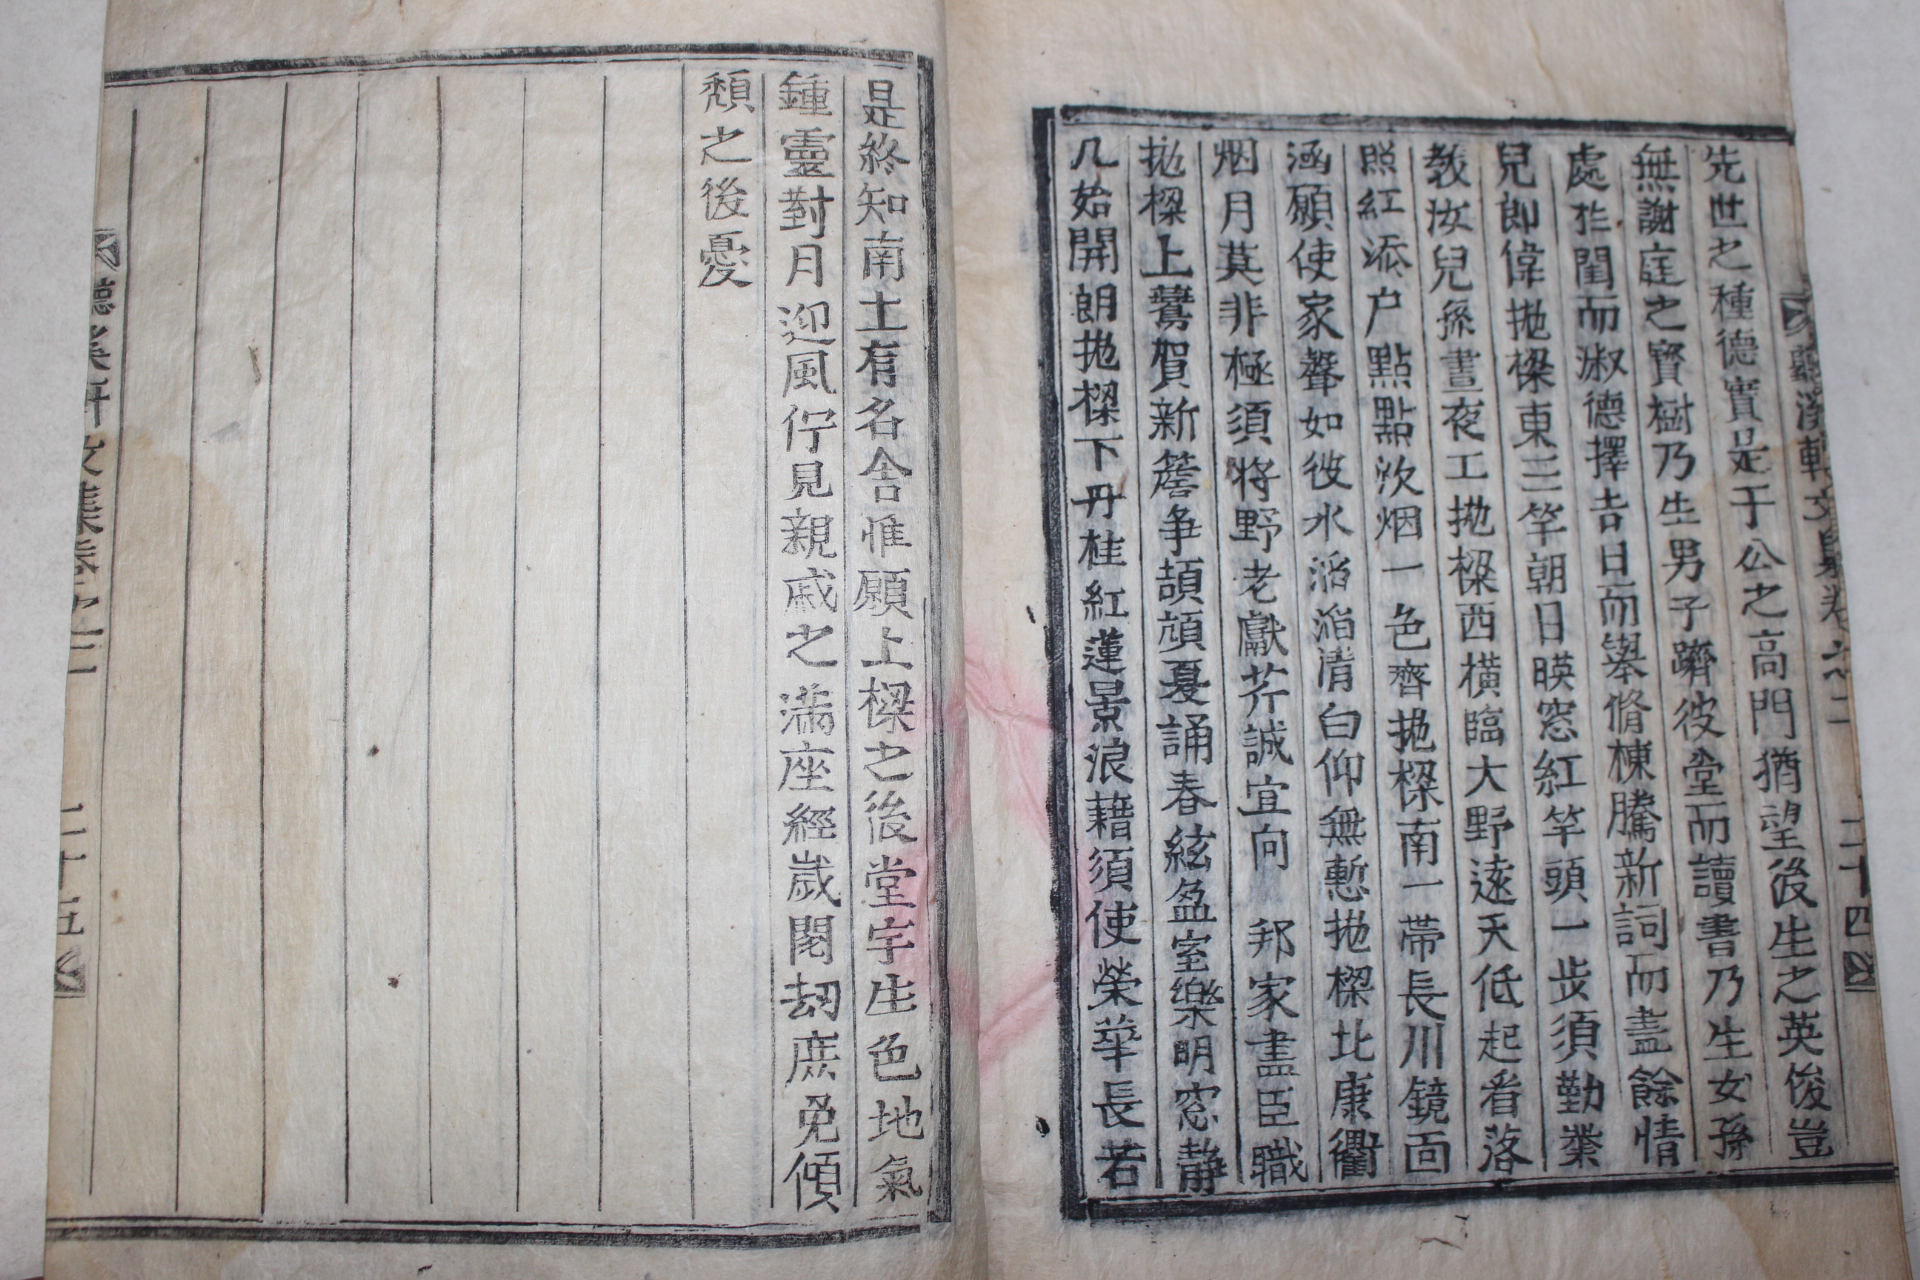 先世之種德實是于公之高門猶望後生之英俊豈
無謝庭之寶樹乃生男子躋彼堂而讀書乃生女孫
處於閨而淑德擇吉日而擧脩棟騰新詞而盡餘情
兒郞偉抛樑東三竿朝日暎窓紅竿頭一步須勤業
敎汝兒孫晝夜工抛樑西橫臨大野遠天低起看落
照紅添户點點炊烟一色齊抛樑南一帶長川鏡面
涵願使家聲如彼水滔滔清白仰無慙抛樑北康衢
烟月莫非極須將野老獻芹誠宜向 邦家盡臣職
抛樑上鷰賀新簷爭頡頏憂誦春絃盈室樂明窓靜
几始開朗抛樑下丹桂紅蓮景浪藉須使榮華長若
文集卷之二 二十四
是終知南土有名舍惟願上樑之後堂宇生色地氣
鍾靈對月迎風佇見親戚之滿座經歲閱劫庶免傾
頹之後憂
文集卷之二 二十五